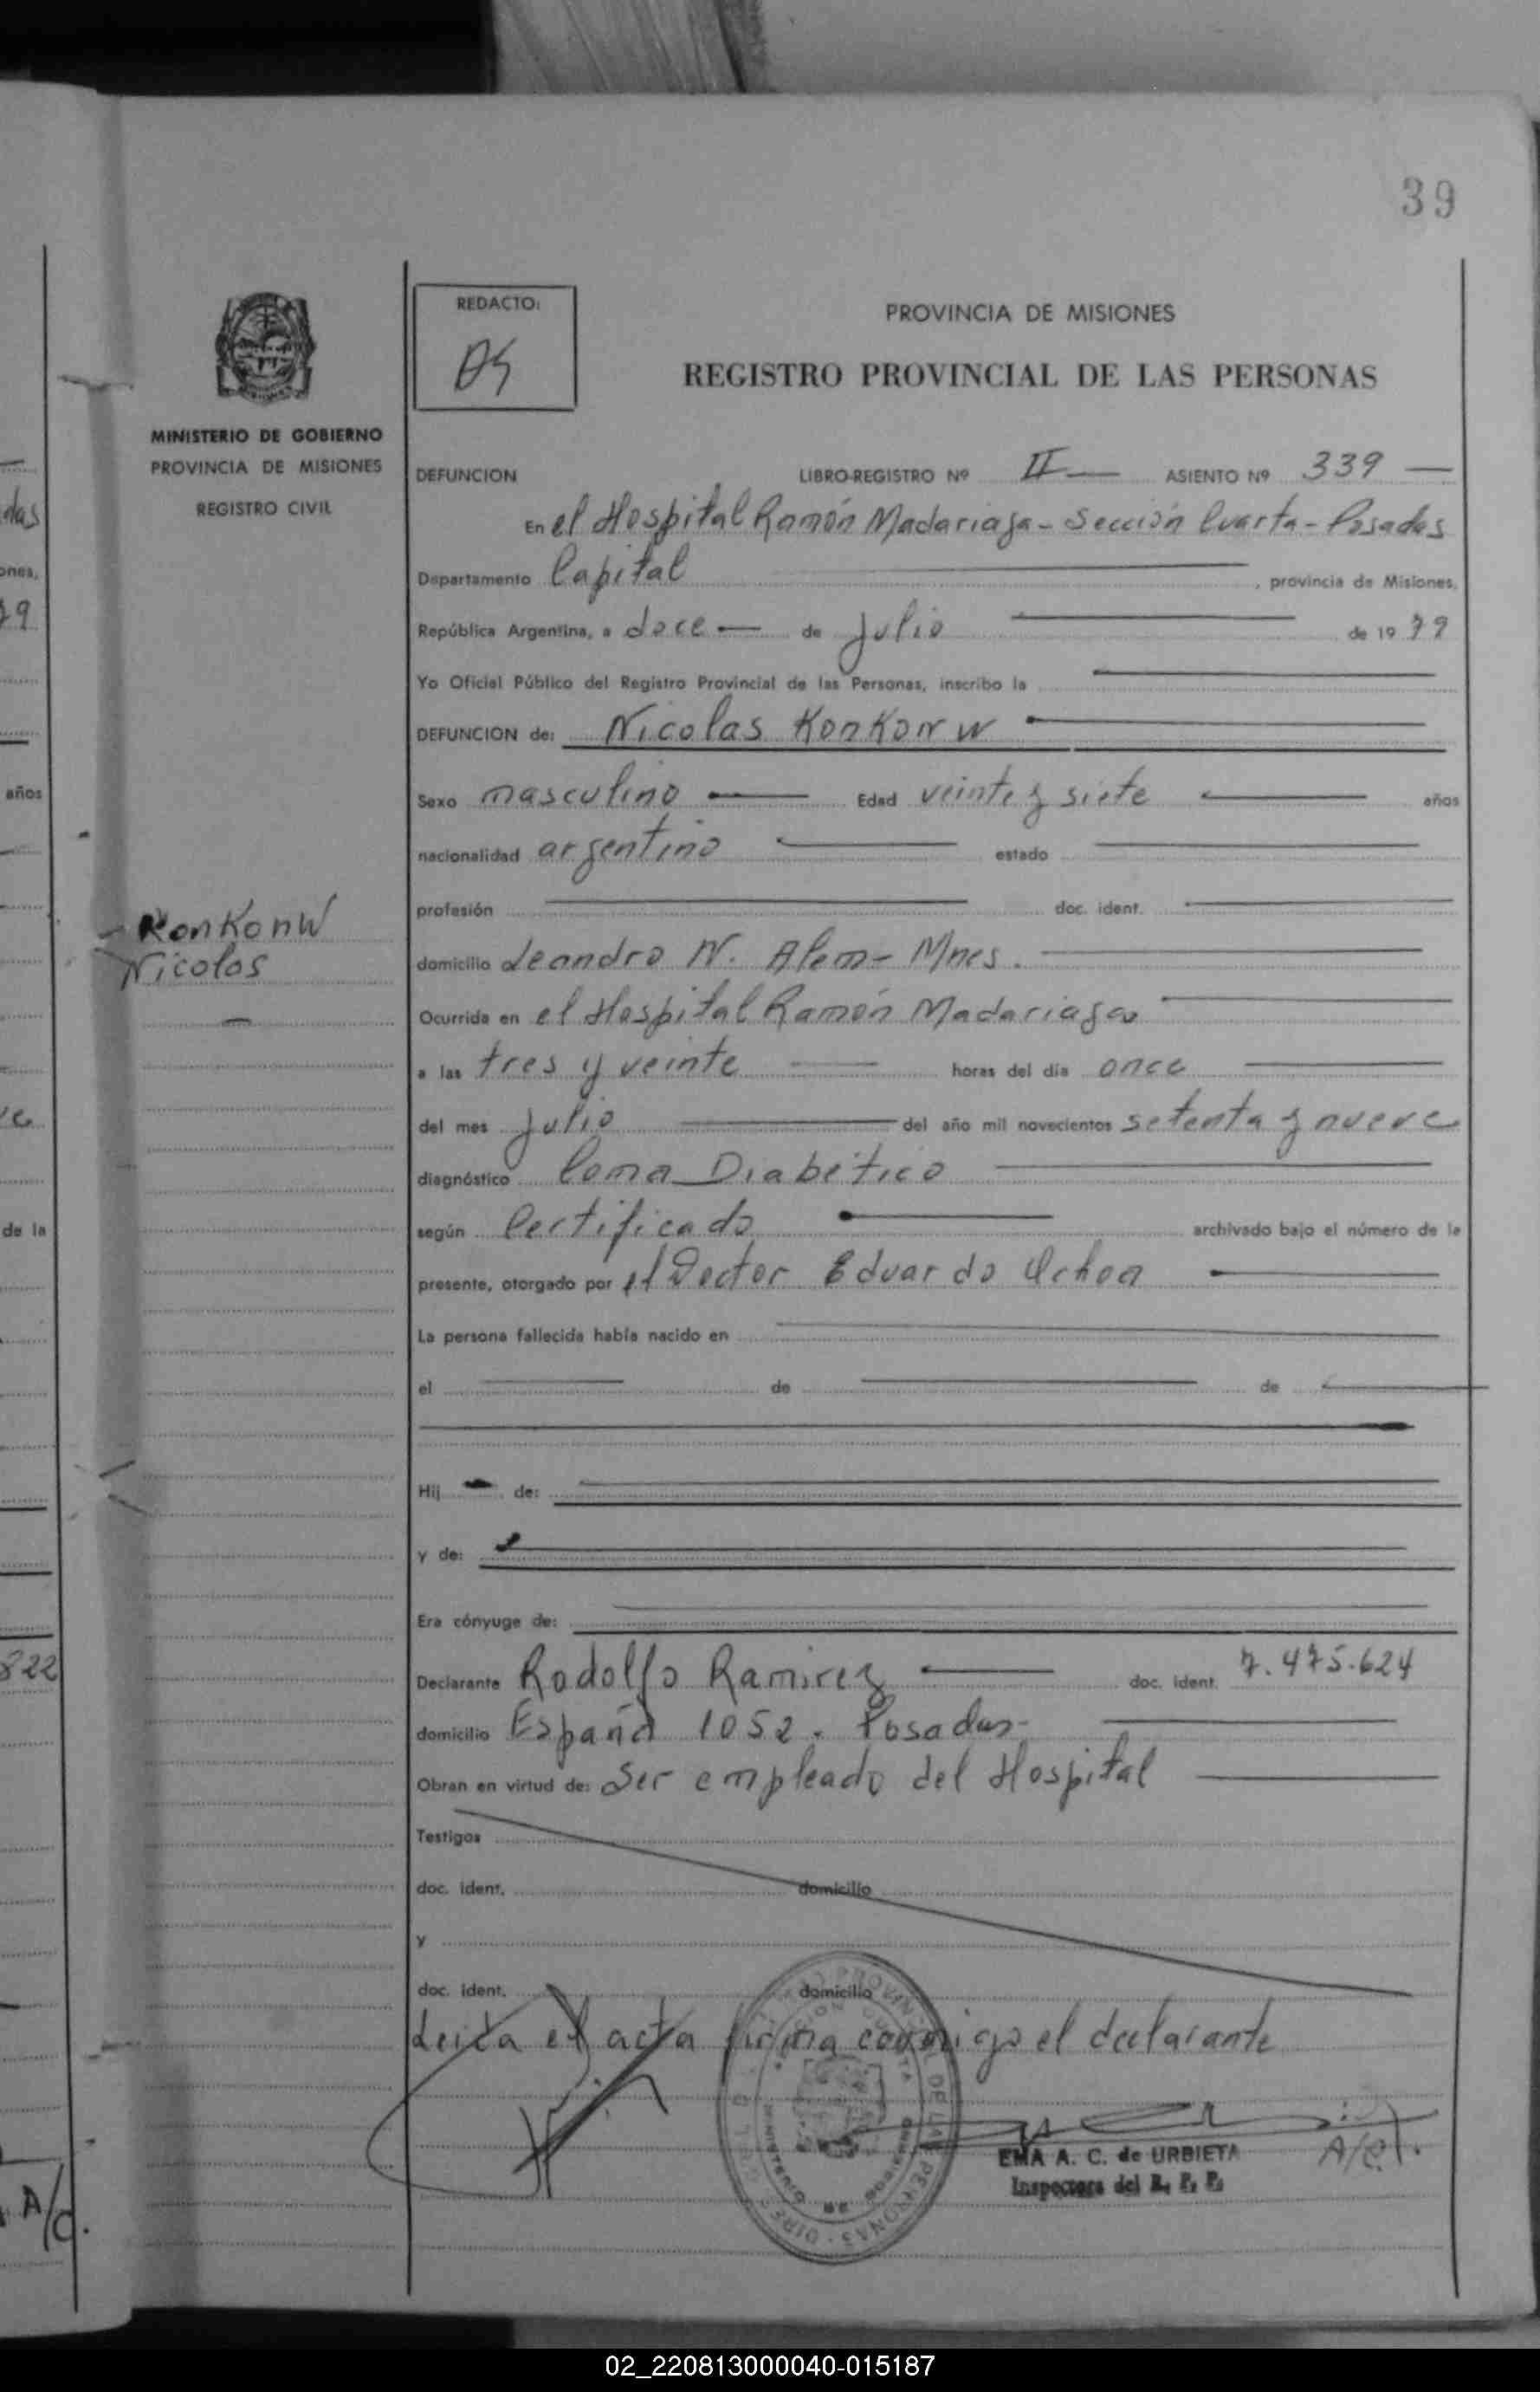 39
REDACTO:
PROVINCIA DE MISIONES
REGISTRO PROVINCIAL DE LAS PERSONAS
MINISTERIO DE GOBIERNO
PROVINCIA DE MISIONES
REGISTRO CIVIL
DEFUNCION LIBRO-REGISTRO Nº II — ASIENTO Nº 339 —
En el Hospital Ramón Madariaga - Sección Cuarta - Posadas
Departamento Capital , provincia de Misiones,
República Argentina, a doce — de Julio de 19 79
Yo Oficial Público del Registro Provincial de las Personas, inscribo la
DEFUNCION de: Nicolas Konkonw
Sexo masculino Edad veinte y siete años
nacionalidad argentino estado
profesión doc. ident.
Konkonw
Nicolas
domicilio Leandro N. Alem - Mnes.
Ocurrida en el Hospital Ramón Madariaga
a las tres y veinte horas del día once
del mes Julio del año mil novecientos setenta y nueve
diagnóstico Coma Diabético
según Certificado archivado bajo el número de la
presente, otorgado por el Doctor Eduardo Ochoa
La persona fallecida había nacido en
el de de
Hij de:
y de:
Era cónyuge de:
Declarante Rodolfo Ramirez doc. ident. 7.475.624
domicilio España 1052 - Posadas -
Obran en virtud de: Ser empleado del Hospital
Testigos
doc. ident. domicilio
y
doc. ident. domicilio
Leida el acta firma conmigo el declarante
EMA A. C. de URBIETA
Inspectora del R. P. P.
años
de la
822
A/c.
02_220813000040-015187